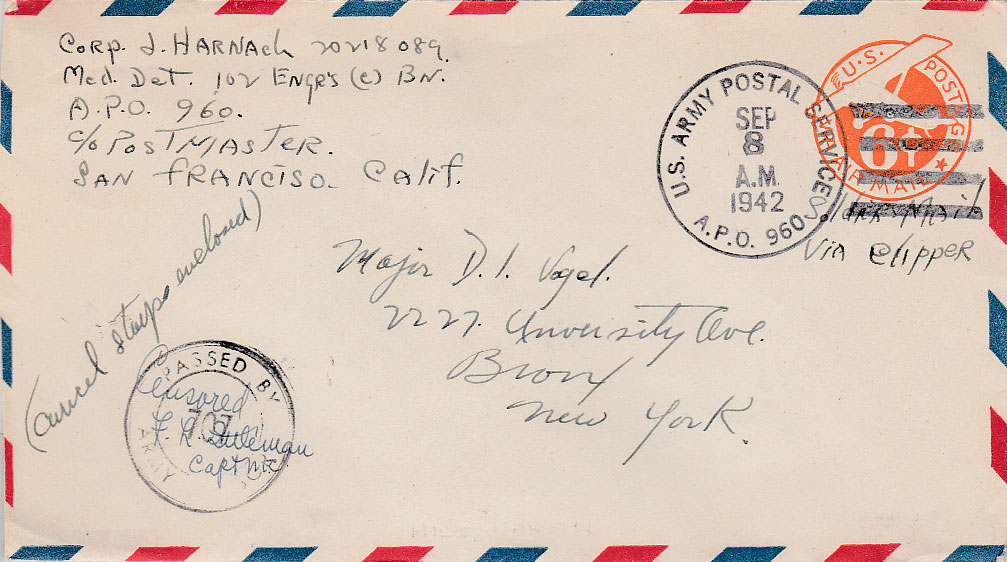 Corp. J. HARNAch 20218089
Med. Det. 102 Engr's (c) BN.
A.P.O. 960.
c/o PostMASTER.
SAN FRANCISO. Calif.
U.S. ARMY POSTAL SERVICE
SEP
8
A.M.
1942
A.P.O. 960
U.S. POSTAGE
6¢
AIR MAIL
Mail
Via Clipper
(Cancel stamps enclosed)
Major D. I. Vogel.
2227. University Ave.
Bronx
New York.
PASSED BY
Censored
707
Capt MC.
ARMY